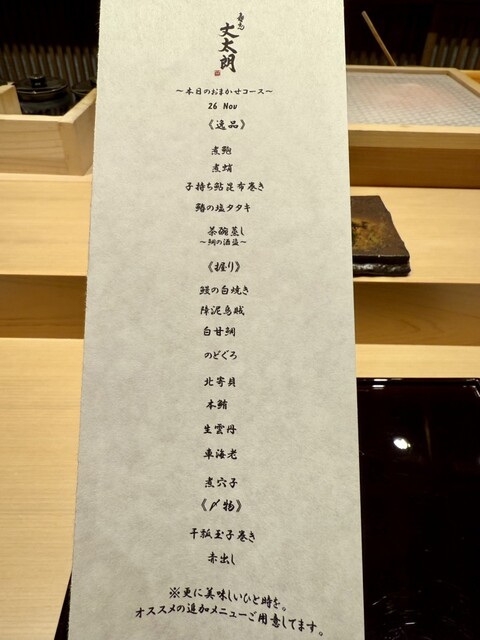 寿志
丈太朗
〜本日のおまかせコース〜
26 Nov
《逸品》
煮鮑
煮蛸
子持ち鮎昆布巻き
鰆の塩タタキ
茶碗蒸し
〜鯛の酒盗〜
《握り》
鰻の白焼き
障泥烏賊
白甘鯛
のどぐろ
北寄貝
本鮪
生雲丹
車海老
煮穴子
《〆物》
干瓢玉子巻き
赤出し
※更に美味しいひと時を。
オススメの追加メニューご用意してます。